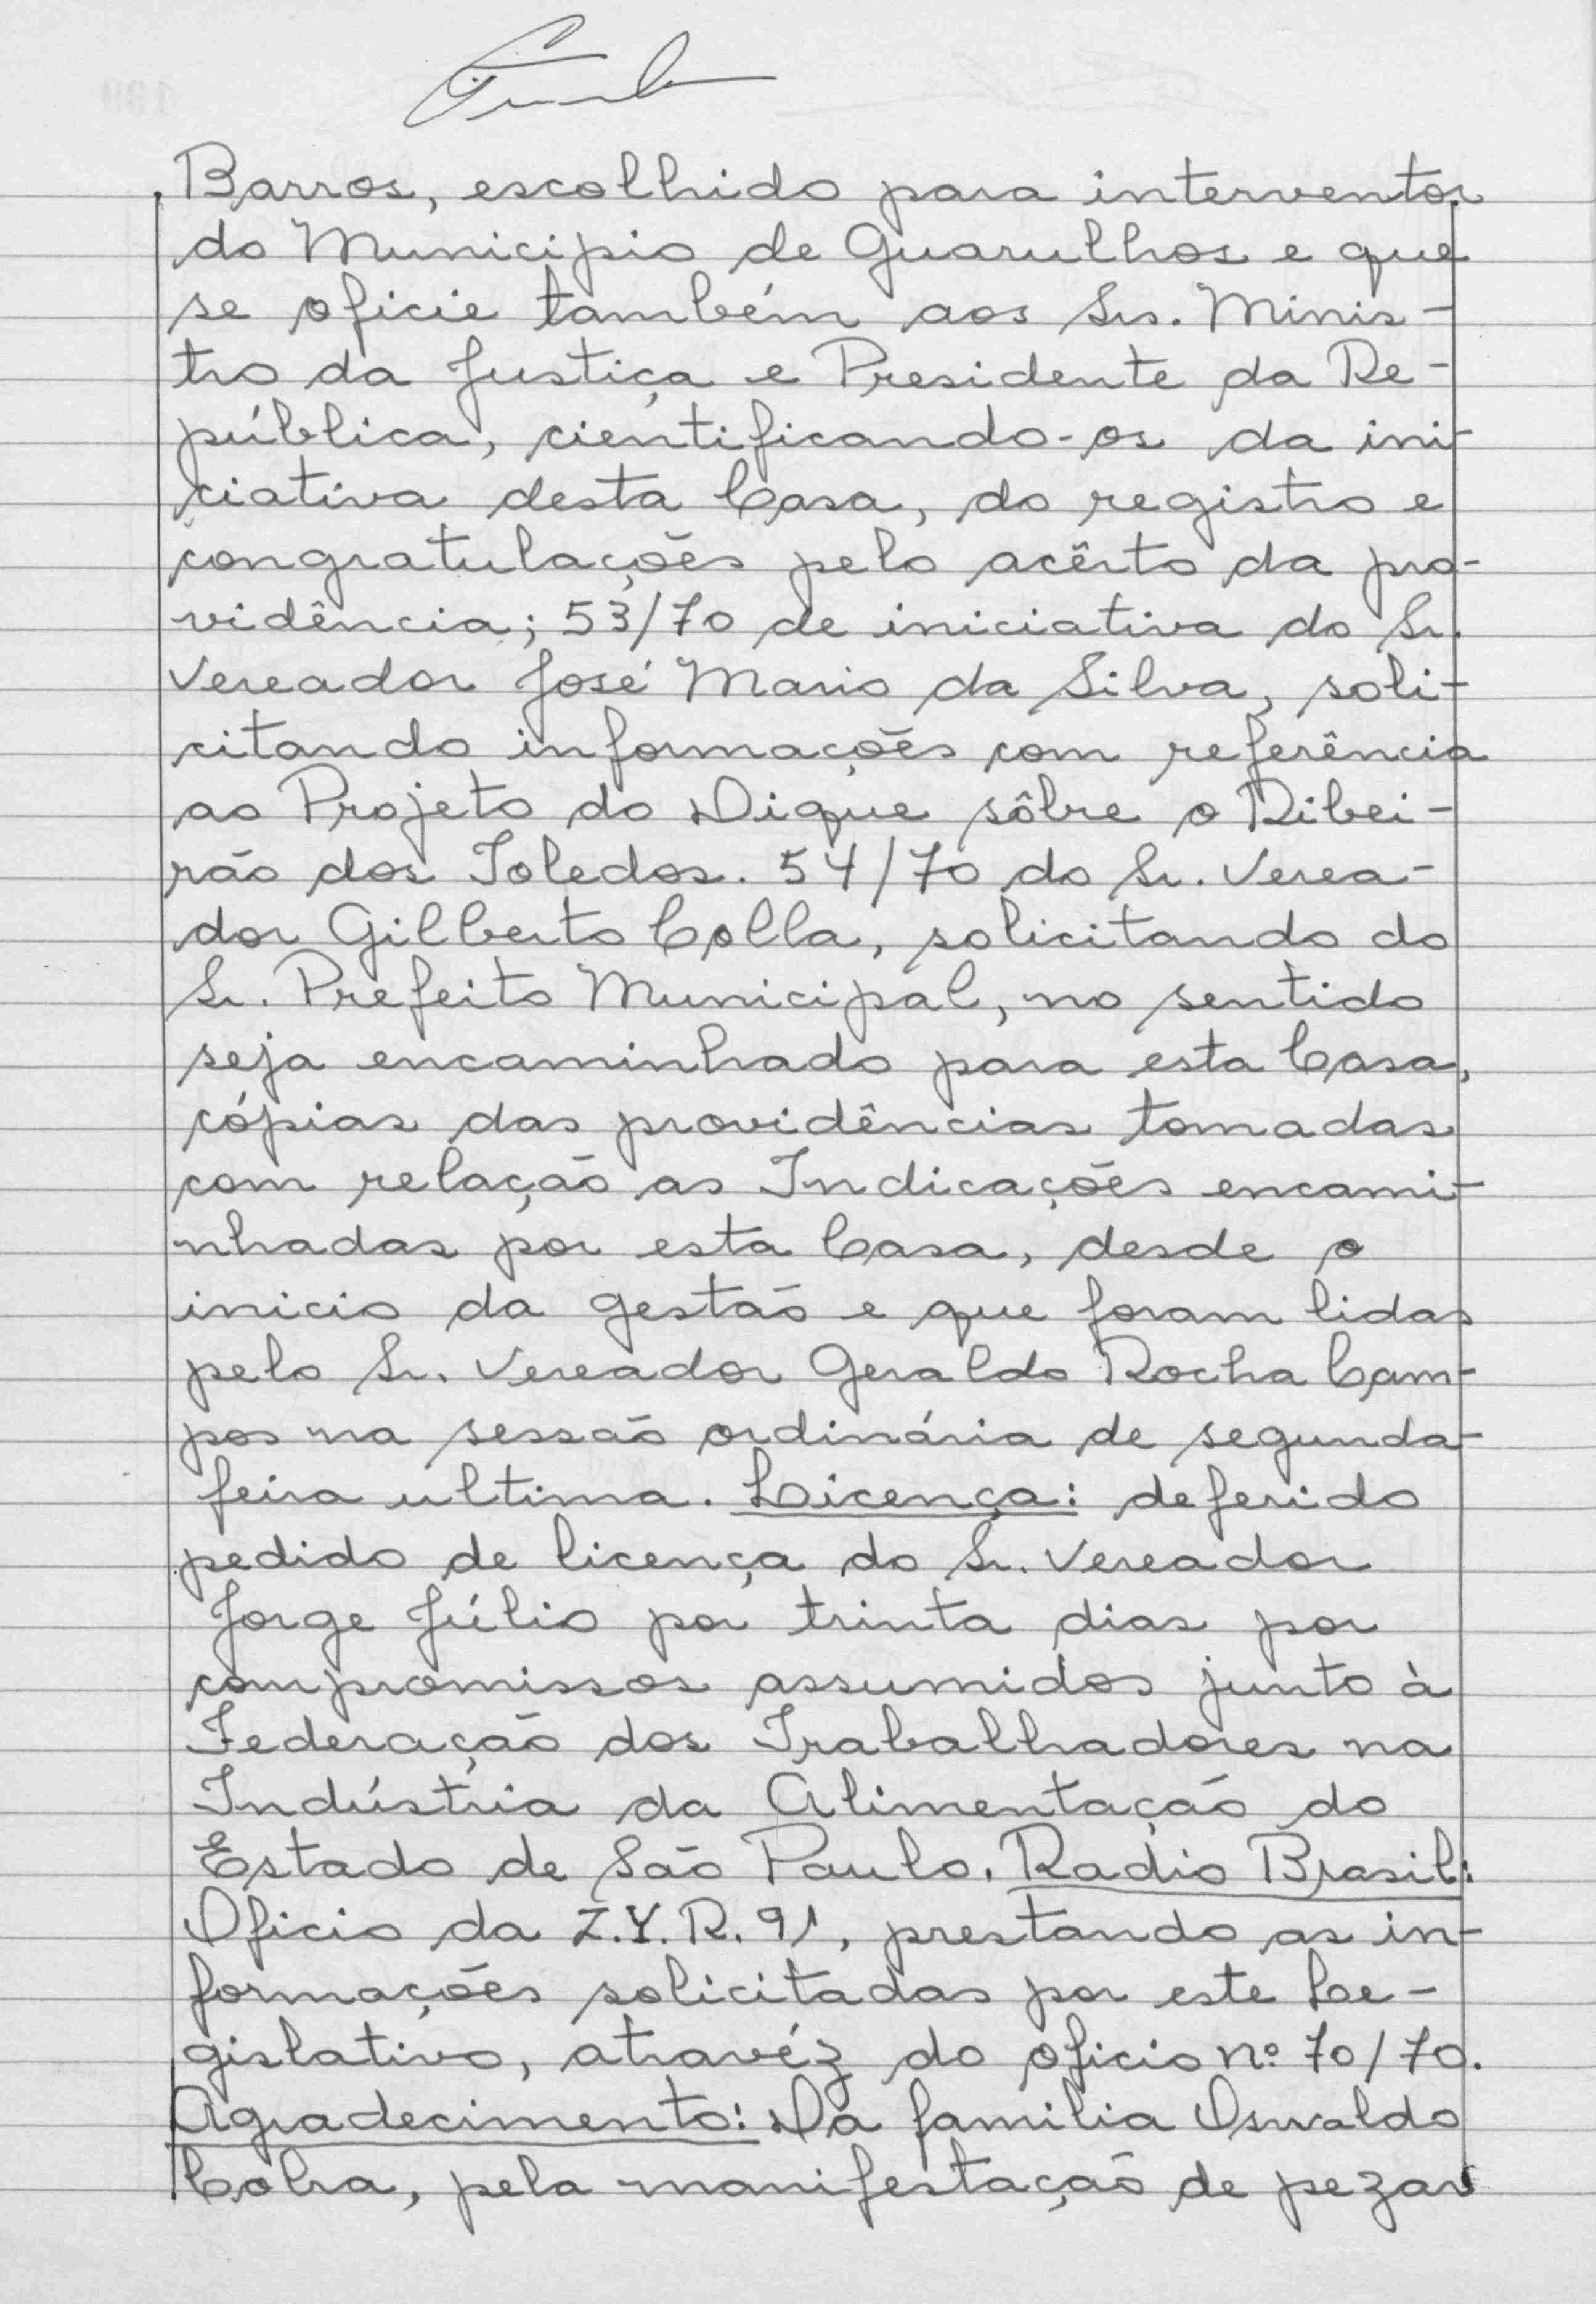 Barros, escolhido para interventor
do Municipio de Guarulhos e que
se oficie também aos Srs. Minis-
tro da Justiça e Presidente da Re-
pública, cientificando-os da ini-
ciativa desta Casa, do registro e
congratulações pelo acêrto da pro-
vidência; 53/70 de iniciativa do Sr.
Vereador José Mario da Silva, soli-
citando informações com referência
ao Projeto do Dique sôbre o Ribei-
rão dos Toledos. 54/70 do Sr. Verea-
dor Gilberto Colla, solicitando do
Sr. Prefeito Municipal, no sentido
seja encaminhado para esta Casa,
cópias das providências tomadas
com relação as Indicações encami-
nhadas por esta Casa, desde o
inicio da gestão e que foram lidas
pelo Sr. Vereador Geraldo Rocha Cam-
pos na sessão ordinária de segunda-
feira ultima. Licença: deferido
pedido de licença do Sr. Vereador
Jorge Júlio por trinta dias por
compromissos assumidos junto à
Federação dos Trabalhadores na
Indústria da Alimentação do
Estado de São Paulo. Radio Brasil:
Oficio da Z.Y.R. 91, prestando as in-
formações solicitadas por este Le-
gislativo, atravéz do oficio nº 70/70.
Agradecimento: Da familia Osvaldo
pela manifestação de pezar